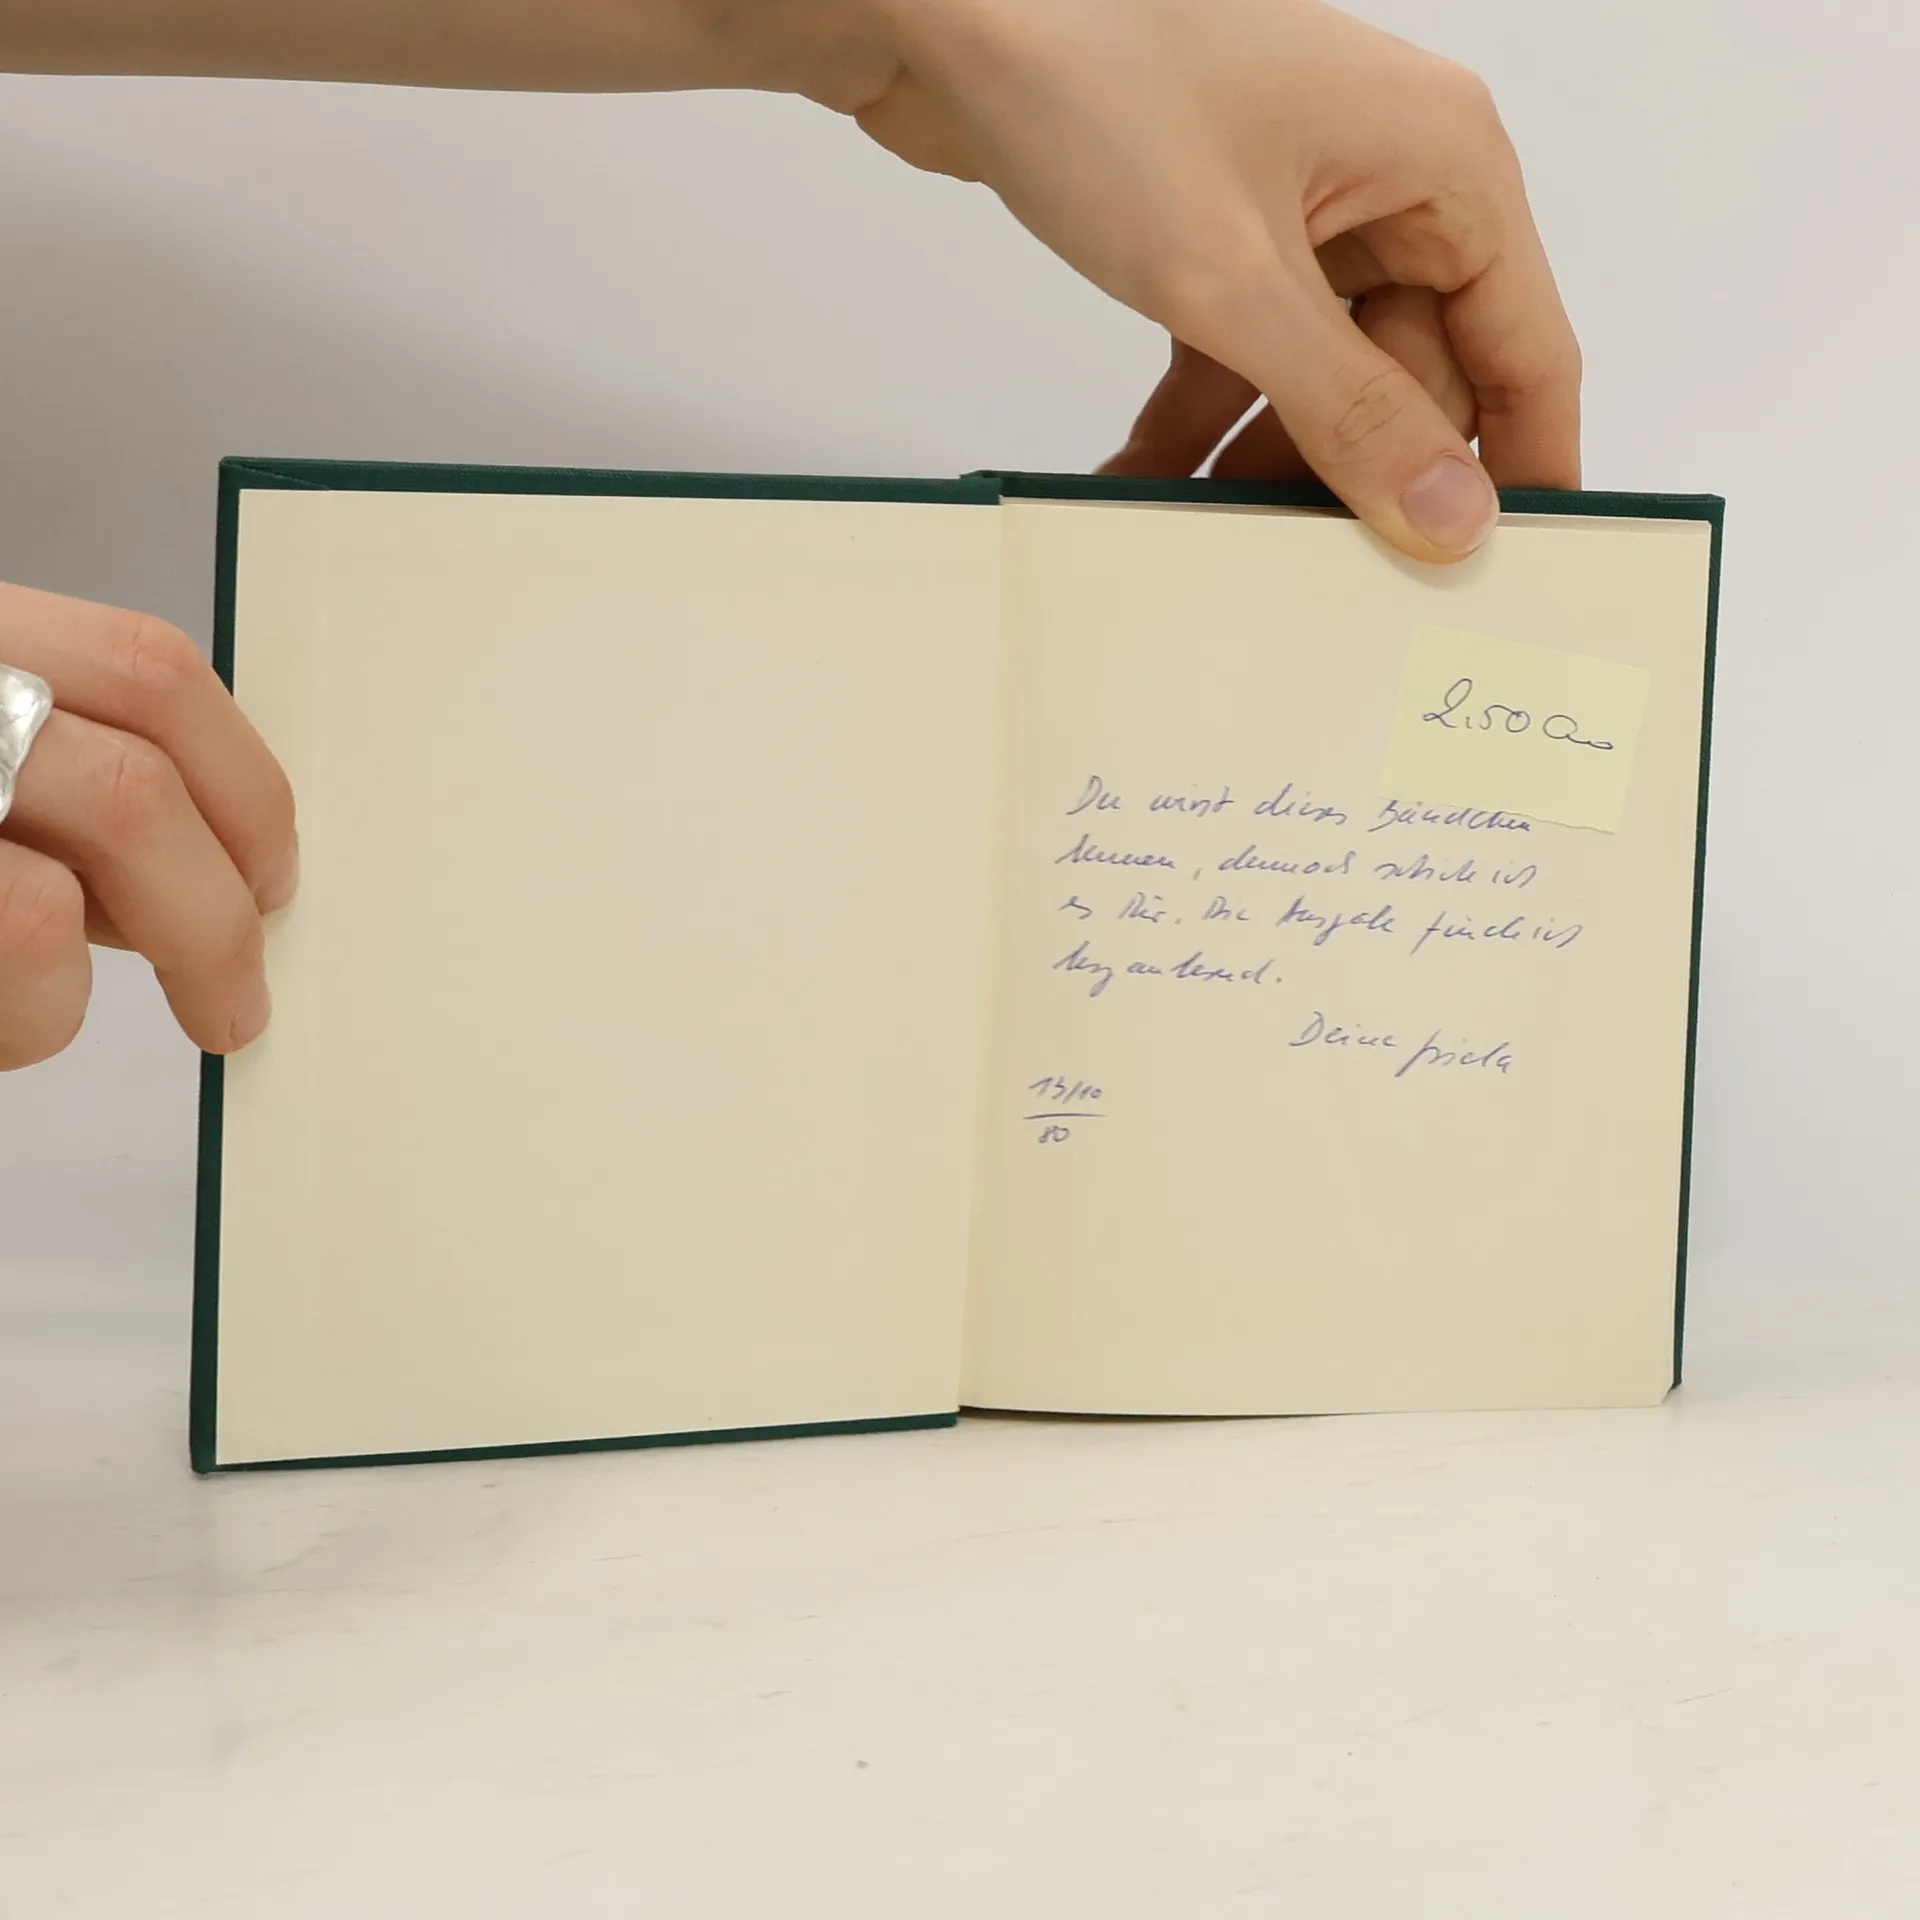 2.50
Du wirst dieses Bändchen
kennen, dennoch schicke ich
es Dir. Die Ausgabe finde ich
bezaubernd.
Deine
13/10
80